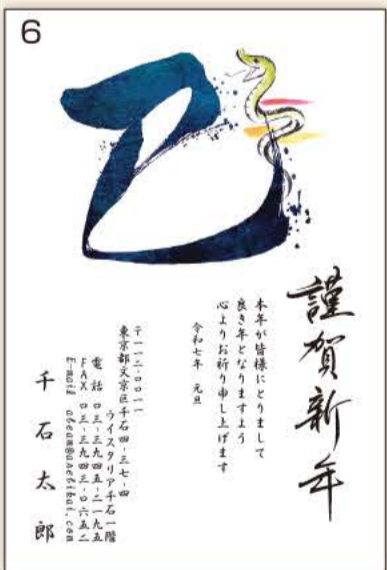 6
巳
謹賀新年
本年が皆様にとりまして
良き年となりますよう
心よりお祈り申し上げます
令和七年 元旦
〒一一二-〇〇一一
東京都文京区千石四-三七-四
ウイスタリア千石一階
電話 〇三-三九四五-二一九五
FAX 〇三-三九四三-〇六五二
千石太郎